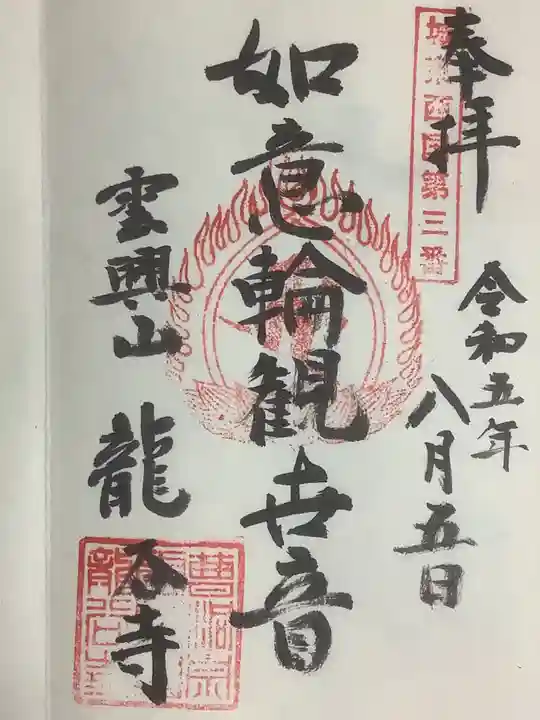 奉拝
城東西国第三番
令和五年
八月五日
如意輪観世音
雲興山 龍石寺